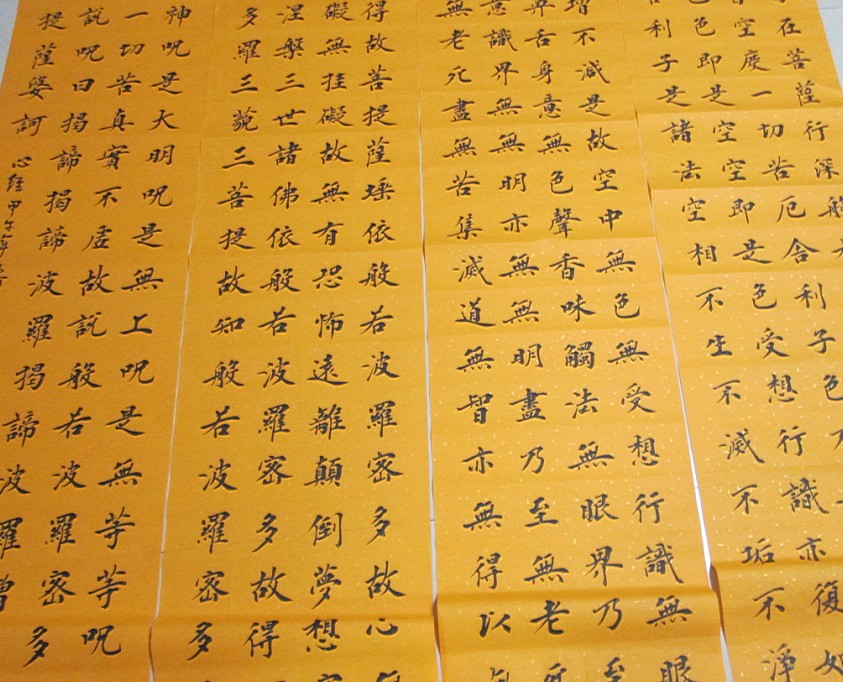 在菩薩行深般
空度一切苦厄舍利子色
色即是空空即是色受想行識亦復如
利子是諸法空相不生不滅不垢不淨
增不減是故空中無色無受想行識無眼
鼻舌身意無色聲香味觸法無眼界乃至
意識界無無明亦無無明盡乃至無老死
無老死盡無苦集滅道無智亦無得以
得故菩提薩埵依般若波羅密多故心
礙無挂礙故無有恐怖遠離顛倒夢想
涅槃三世諸佛依般若波羅密多故得
多羅三藐三菩提故知般若波羅密多
神呪是大明呪是無上呪是無等等呪
一切苦真實不虛故說般若波羅密多
說呪曰揭諦揭諦波羅揭諦波羅僧
提薩婆訶
心經甲午年